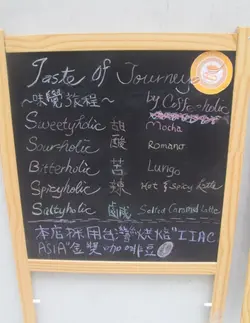 Taste Of Journey
~味覺旅程~ by Coffee-holic
Sweetyholic 甜 Mocha
Sourholic 酸 Romano
Bitterholic 苦 Lungo
Spicyholic 辣 Hot & Spicy Latte
Saltyholic 鹹 Salted Caramel Latte
本店採用台灣烘焙"IIAC
ASIA"金獎咖啡豆